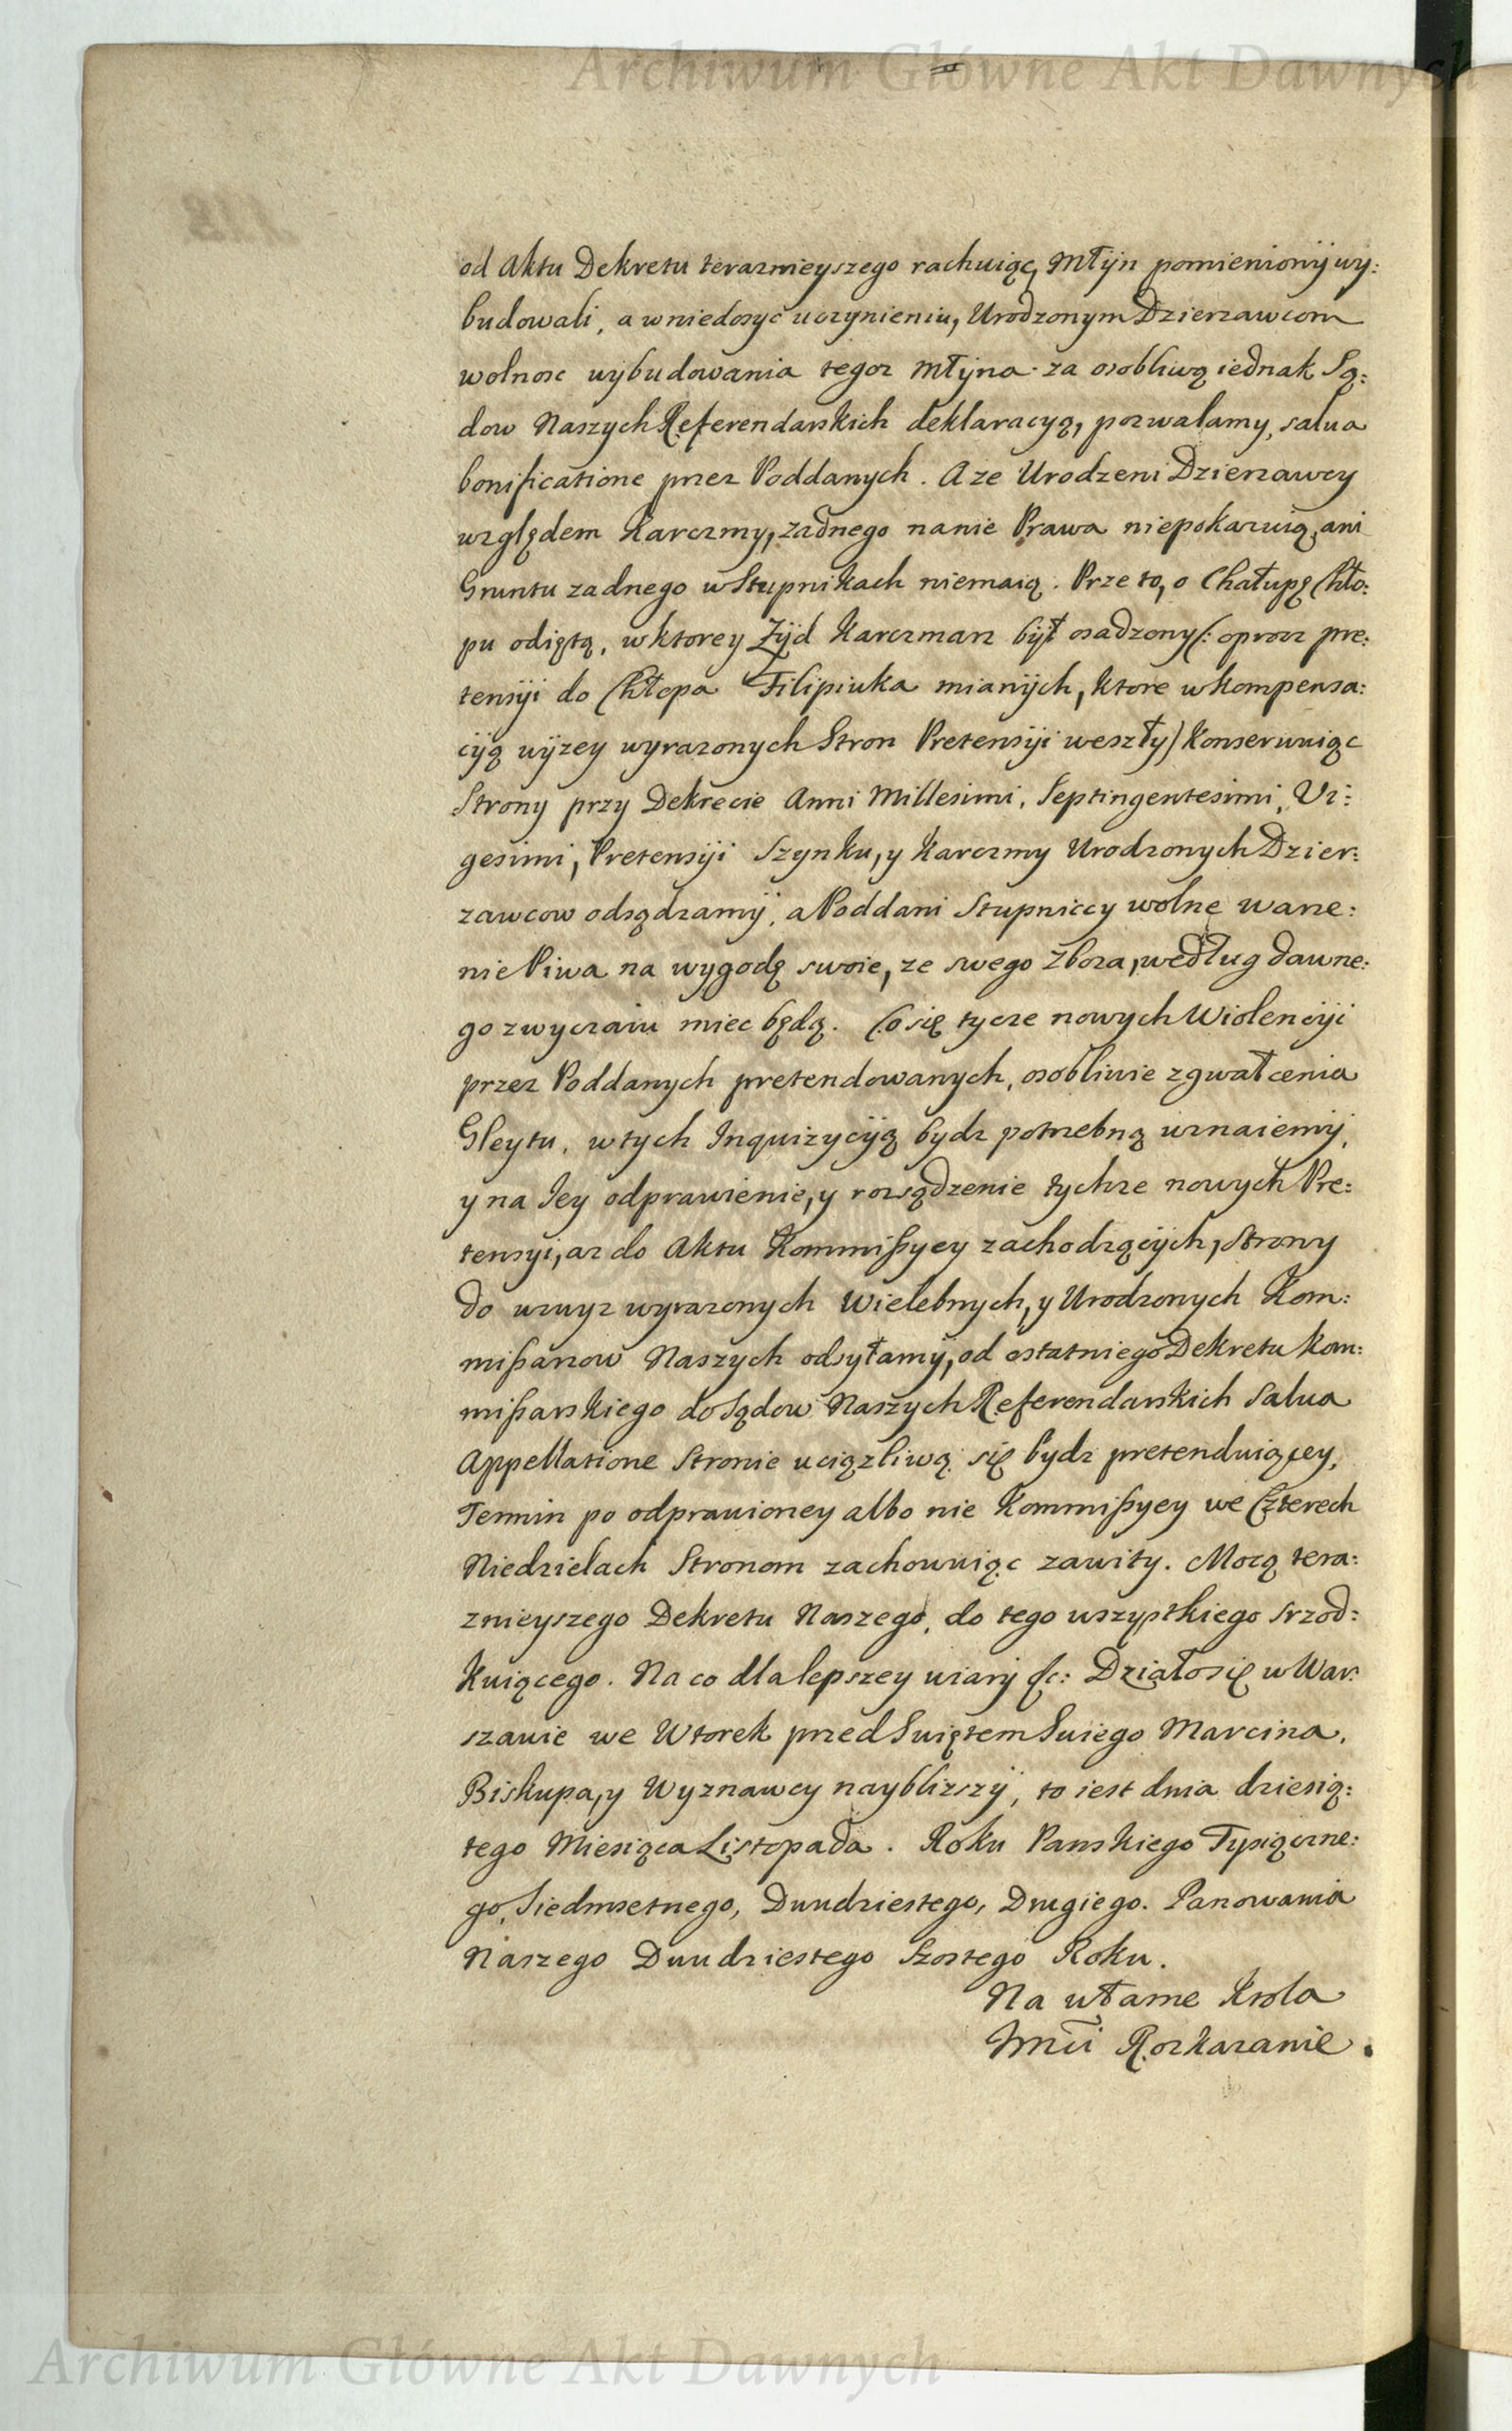 Archiwum Główne Akt Dawnych
od Aktu Dekretu teraznieyszego rachuiąc, Młÿn pomienionÿ wy:
budowali, a wniedosyć uczynieniu, Urodzonym Dzierzawcom
wolnosc wÿbudowania tegoz Młÿna za osobliwą iednak Są:
dow Naszych Referendarskich deklaracyą, pozwalamy, salva
bonificatione przez Poddanych. A ze Urodzeni Dzierzawcy
względem Karczmy, zadnego nanie Prawa niepokazuią, ani
Gruntu zadnego w Stupnikach niemaią. Prze to, o Chałupę Chło:
pu odiętą, w ktorey Zÿd Karczmarz bÿł osadzony (: oprocz pre:
tensÿi do Chłopa Filipiuka mianÿch, ktore wkompensa:
cÿą wÿzey wyrazonych Stron Pretensÿi weszły) Konserwuiąc
Strony przy Dekrecie Anni Millesimi, Septingentesimi, Vi:
gesimi, Pretensÿi Szynku, y Karczmy Urodzonych Dzier:
zawcow odsądzamÿ, a Poddani Stupniccy wolne warze:
nie Piwa na wygodę swoie, ze swego Zboza, według dawne:
go zwyczaiu miec będą. Co się tycze nowych Wiolencÿi
przez Poddanych pretendowanych, osobliwie zgwałcenia
Gleytu, w tych Inquizycÿą bydz potrzebną uznaiemÿ,
y na Jey odprawienie, y rozsądzenie tychze nowych Pre:
tensyi, az do Aktu Kommißyey zachodzącÿch, Strony
do wzwyz wyrazonych Wielebnych, y Urodzonych Kom:
mißarzow Naszych odsyłamÿ, od ostatniego Dekretu kom:
mißarskiego do Sądow Naszych Referendarskich Salva
Appellatione Stronie uciązliwą się bydz pretenduiącey,
Termin po odprawioney albo nie Kommißyey we Czterech
Niedzielach Stronom zachowuiąc zawity. Mocą tera:
znieyszego Dekretu Naszego, do tego wszystkiego srzod:
kuiącego. Na co dla lepszey wiarÿ &c: Działo się w War:
szawie we Wtorek przed Swiętem Swiego Marcina,
Biskupa, y Wyznawcy naybliszszÿ, to iest dnia dziesią:
tego Miesiąca Listopada. Roku Panskiego Tysiączne:
go, Siedmsetnego, Dwudziestego, Drugiego. Panowania
Naszego Dwudziestego Szostego Roku.
Na własne Krola
Jmci Rozkazanie.
Archiwum Główne Akt Dawnych